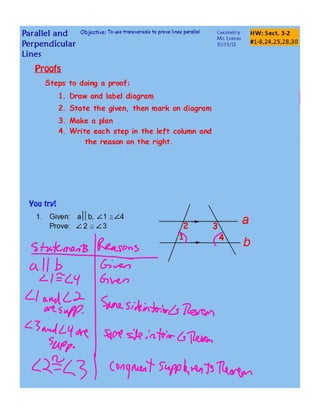 Parallel and
Perpendicular
Lines
Objective: To use transversals to prove lines parallel
Geometry
Mr. Lomas
10/15/12
HW: Sect. 3-2
#1-8,24,25,28,30
Proofs
Steps to doing a proof:
1. Draw and label diagram
2. State the given, then mark on diagram
3. Make a plan
4. Write each step in the left column and
the reason on the right.
You try!
1. Given: a||b, ∠1 ≅ ∠4
Prove: ∠2 ≅ ∠3
2 3 a
1 4 b
Statements Reasons
a || b Given
∠1 ≅ ∠4 Given
∠1 and ∠2
are supp. Same side interior ∠s Theorem
∠3 and ∠4 are
supp. Same side interior ∠s Theorem
∠2 ≅ ∠3 Congruent Supplements Theorem